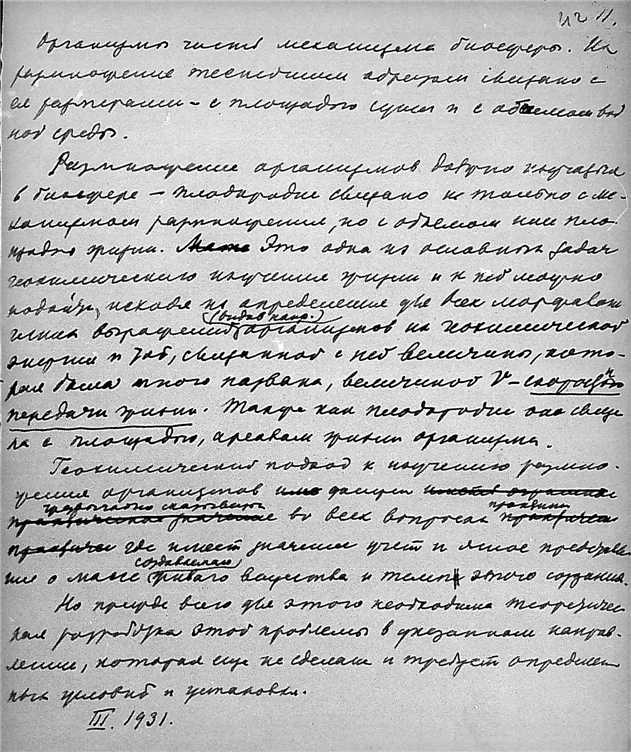 Организмы часть механизма биосферы. Их
размножение теснейшим образом связано с
ее размерами – с площадью суши и с объемом вод
ной среды.
Размножение организмов должно изучаться
в биосфере – плодородие связано не только с ме-
ханизмом размножения, но с объемом или пло
щадью жизни. Это одна из основных задач
геохимического изучения жизни и к ней можно
подойти, исходя из определения для всех морфологи
(видов напр.)
ческих выражений организмов их геохимической
энергии и той, связанной с ней величины, кото-
рая была мною названа, величиной V – скоростью
передачи жизни. Также как плодородие она связа
на с площадью, ареалом жизни организма.
Геохимический подход к изучению размно-
жения организмов должен
чрезвычайно сказаться во всех вопросах практики
где имеет значение учет и ясное представле
ние о массе создаваемого живого вещества и темп этого создания.
Но прежде всего для этого необходима теоретичес
кая разработка этой проблемы в указанном направ-
лении, которая еще не сделана и требует определен
ных условий и установки.
III. 1931.